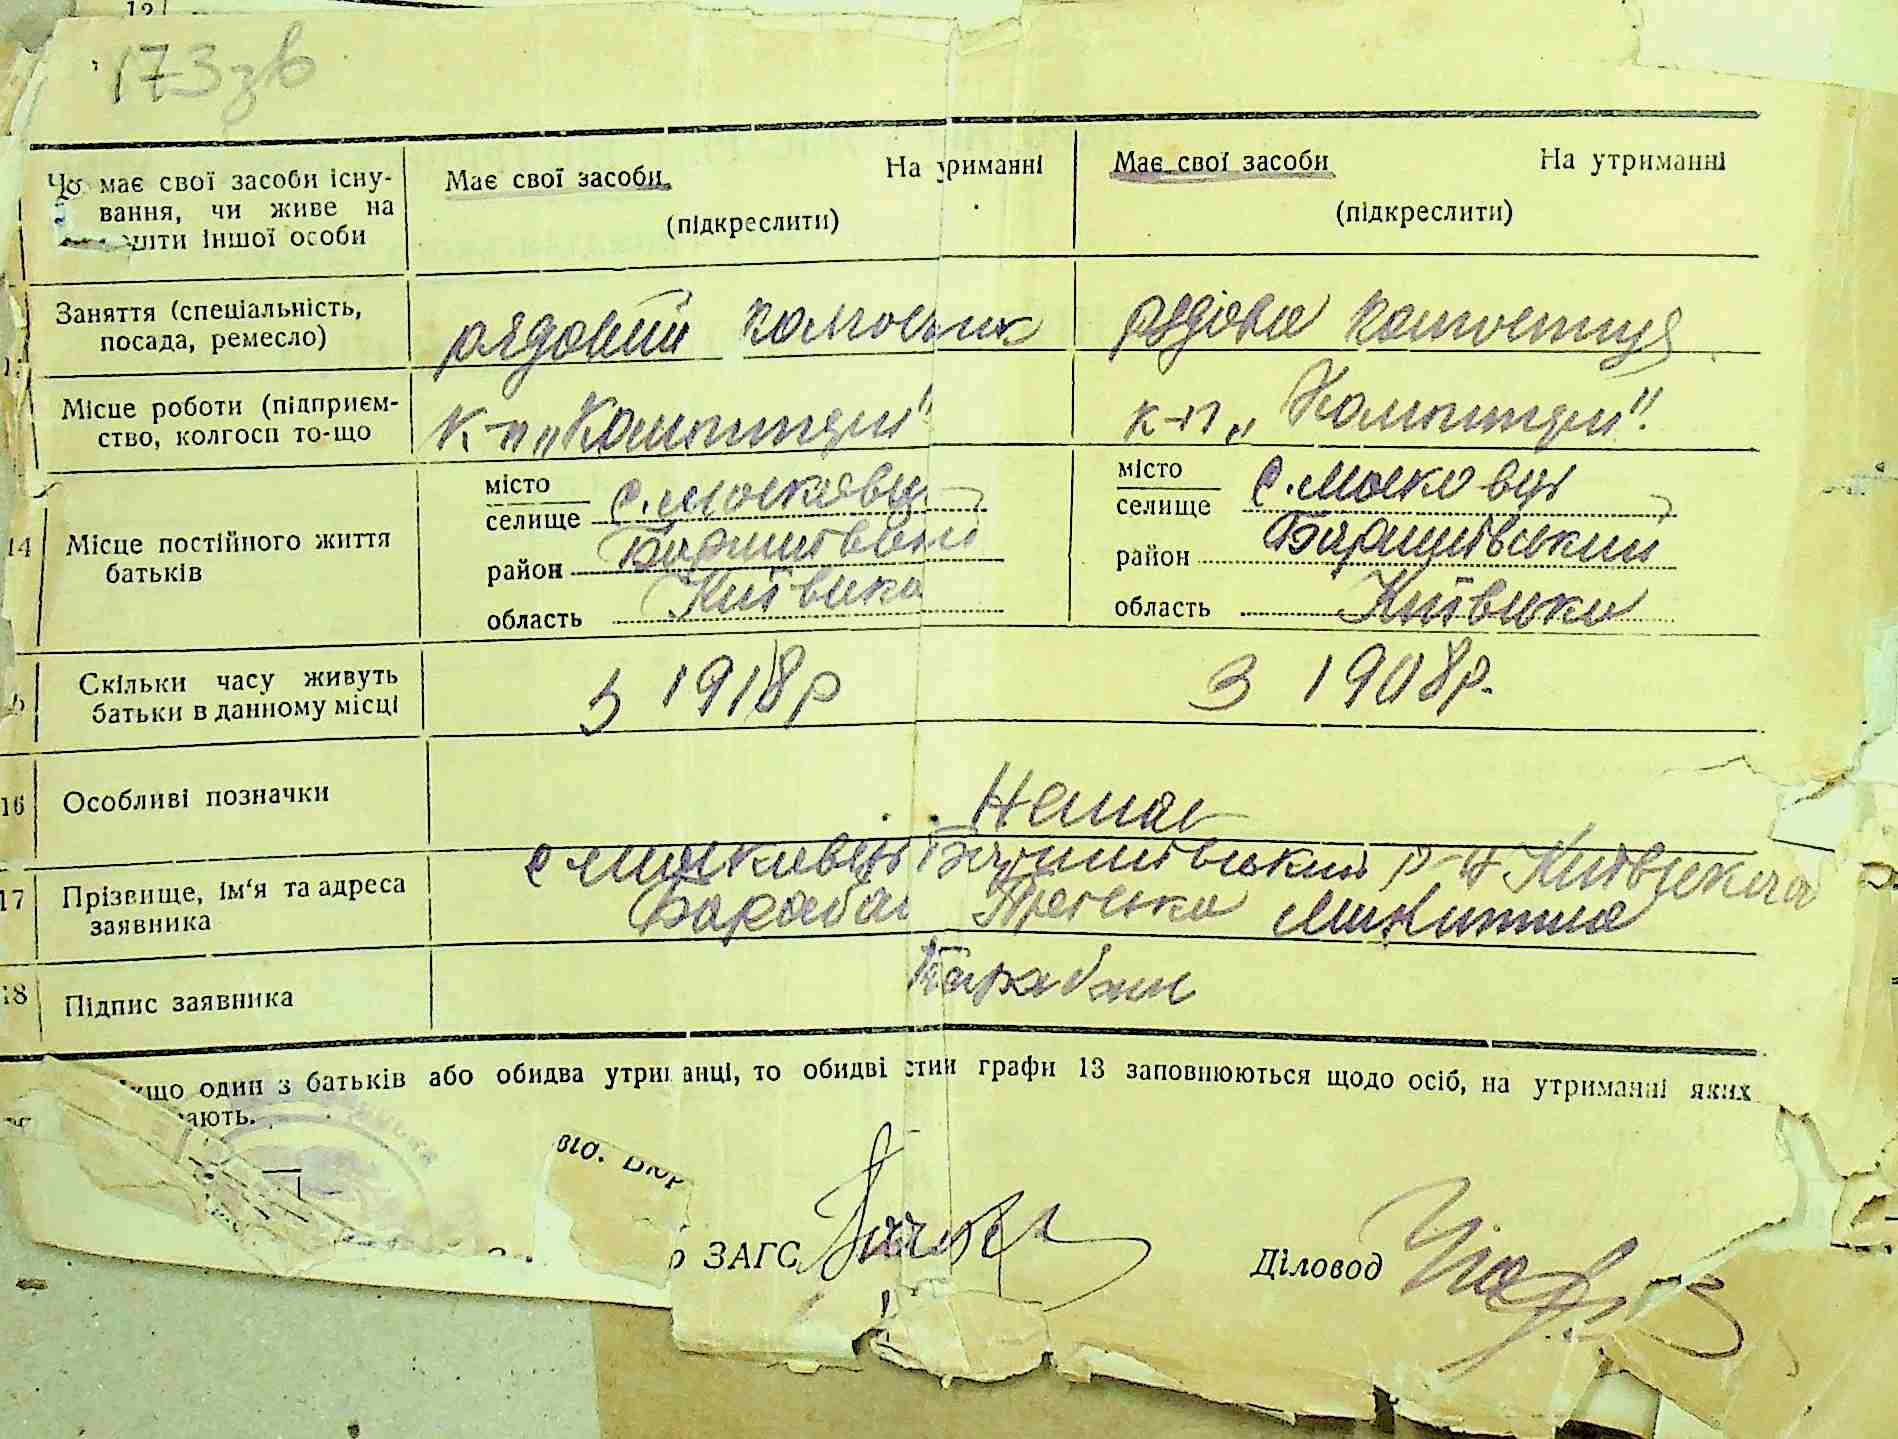 12
173 зв
має свої засоби існу-
вання, чи живе на
шти іншої особи
Має свої засоби
На утриманні
(підкреслити)
Має свої засоби
На утриманні
(підкреслити)
Заняття (спеціальність,
посада, ремесло)
рядовий колгоспник
рядова колгоспниця
Місце роботи (підприєм-
ство, колгосп то-що
к-п „Комінтерн"
к-п „Комінтерн".
14
Місце постійного життя
батьків
місто
селище
с. Москівці
район
Баришівський
область
Київська
місто
селище
с. Москівці
район
Баришівський
область
Київська
Скільки часу живуть
батьки в данному місці
з 1918 р
З 1908 р.
16
Особливі позначки
Немає
17
Прізвище, ім'я та адреса
заявника
с Москівці Баришівський р-н Київська
Барабаш Микитка
18
Підпис заявника
Барабаш
кщо один з батьків або обидва утриманці, то обидві стини графи 13 заповнюються щодо осіб, на утриманні яких
вають.
ЗАГС
Діловод